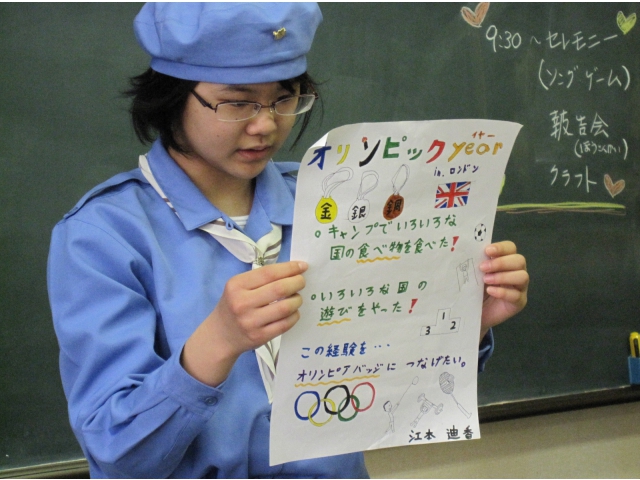 9:30~セレモニー
(ソングゲーム)
報告会
(ほうこくかい)
クラフト
イヤー
オリンピックyear
in.ロンドン
金 銀 銅
。キャンプでいろいろな
国の食べ物を食べた!
。いろいろな国の
遊びをやった!
3 1 2
この経験を…
オリンピアバッジに つなげたい。
江本 迪香